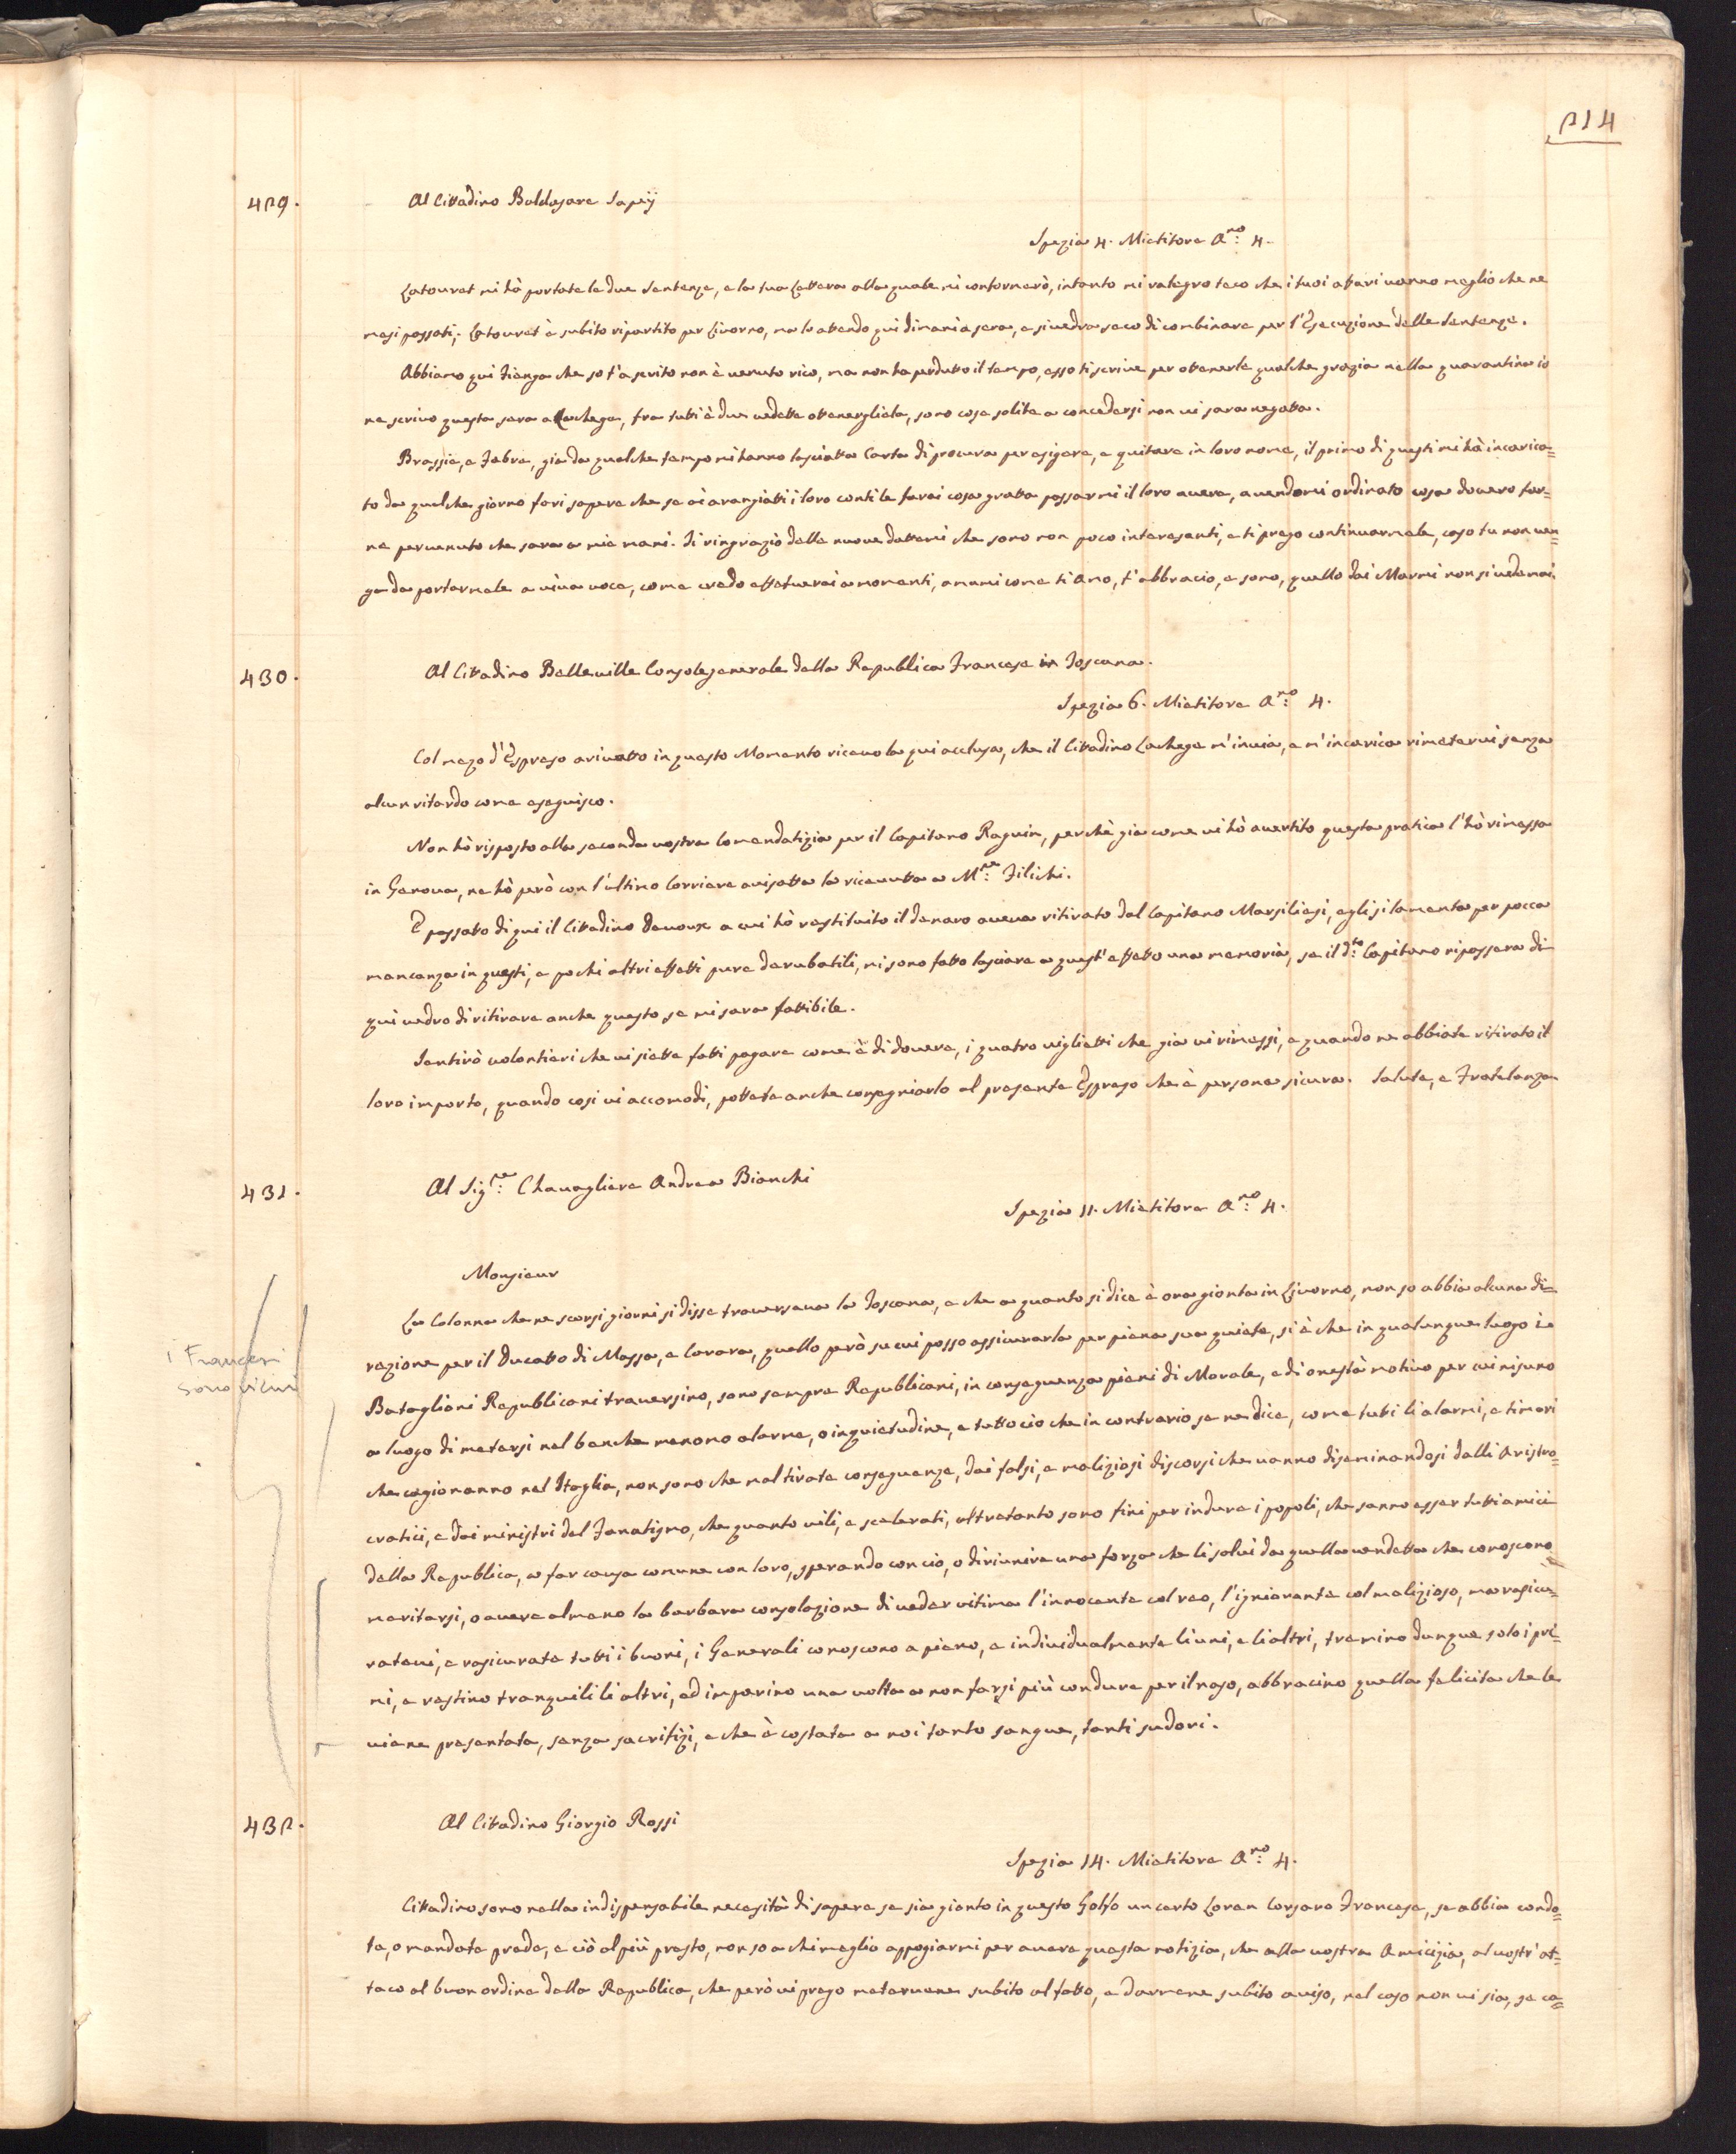 214
429.
Al Cittadino Baldasare Sapej
Spezia 4. Mietitore Anno: 4.
Latouret mi hà portate le due Sentenze, e la tua Lettera alla quale mi conformerò, intanto mi ralegro teco che i tuoi affari vanno meglio che ne
mesi passati; Latouret è subito ripartito per Livorno, ma lo attendo qui dimani a sera, e si vedra seco di combinare per l'Esecuzione delle Sentenze.
Abbiamo qui che so t'a scrito non è venuto rico, ma non ha perdutto il tempo, esso ti scrive per ottenerle qualche grazia nella quarantina io
ne scrivo questa sera a Lachege, fra tutti è due vedette ottenergliela, sono cose solite a concedersi non vi sara negatta.
Brassie, e Fabre, gia da qualche tempo mi hanno lasciatta Carta di procura per esigere, e quitare in loro nome, il primo di questi mi hà incarica=
to da qualche giorno farti sapere che se ai arangiatti i loro conti le farai cosa gratta passarmi il loro avere, avendomi ordinato cosa dovero far=
ne pervenuto che sara a mie mani. Ti ringrazio delle nuove dattemi che sono non poco interesanti, e ti prego continuarmele, caso tu non ven=
ga da portarmele a viva voce, come credo effetuerai a momenti, amami come ti amo, t'abbracio, e sono, quello dai Marmi non si vede mai.
430.
Al Cittadino Belleville Console generale della Republica Francese in Toscana.
Spezia 6. Mietitore Anno: 4.
Col mezo d'Espreso arivatto in questo Momento ricevo la qui acclusa, che il Cittadino Lachege m'invia, e m'incarica rimetervi senza
alcun ritardo come eseguisco.
Non hò risposto alla seconda vostra Comendatizia per il Capitano Raguin, perchè gia come vi hò avertito questa pratica l'hò rimessa
in Genova, ne hò però con l'ultimo Corriere avisatta la ricevutta a Mre: Filichi.
È passatto di qui il Cittadino Davoux a cui hò restituito il denaro aveva ritirato dal Capitano Marsiliesi, egli si lamenta per pocca
mancanza in questi, e pochi altri effetti pure derubatili, mi sono fatto lasciare a quest'effetto una memoria, se il dto: Capitano ripassera di
qui vedro di ritirare anche questo se mi sara fattibile.
Sentirò volontieri che vi siatte fatti pagare come è di dovere, i quatro viglietti che gia vi rimessi, e quando ne abbiate ritirato il
loro importo, quando cosi vi accomodi, pottete anche consegniarlo al presente Espreso che è persona sicura. Salute, e Fratelanza
431.
Al Sigre: Chavagliere Andrea Bianchi
Spezia 11. Mietitore Anno: 4.
Monsieur
La Colonna che ne scorsi giorni si disse traversava la Toscana, e che a quanto si dice è ora gionta in Livorno, non so abbia alcuna di=
i Francesi
sono vicini
rezione per il Ducatto di Massa, e Carara, quello però su cui posso assicurarla per piena sua quiete, si è che in qualunque luogo i
Bataglioni Republicani traversino, sono sempre Republicani, in conseguenza pieni di Morale, e di onestà motivo per cui nisuno
a luogo di metersi nel benche menomo alarme, o inquietudine, e tutto cio che in contrario se ne dice, come tutti li alarmi, e timori
che cagionanno nel Itaglia, non sono che mal tirate conseguenze, dai falsi, e maliziosi discorsi che vanno diseminandosi dalli Aristro=
cratici, e dai ministri del Fanatismo, che quanto vili, e scelerati, altretanto sono fini per indure i popoli, che sanno esser tutti amici
della Republica, a far causa comune con loro, sperando con ciò, o di riunire una forza che li salvi da quella vendetta che conoscono
meritarsi, o avere almeno la barbara consolazione di veder vitima l'innocente col reo, l'igniorante col malizioso, ma rasicu=
ratevi, e rasicurate tutti i buoni, i Generali conoscono a pieno, e individualmente li uni, e li altri, tremino dunque solo i pri=
mi, e restino tranquili li altri, ed imparino una volta a non farsi più condure per il naso, abbracino quella felicita che le
viene presentata, senza sacrifizi, e che è costata a noi tanto sangue, tanti sudori.
432.
Al Cittadino Giorgio Rossi
Spezia 14. Mietitore Anno: 4.
Cittadino sono nella indispensabile necesità di sapere se sia gionto in questo Golfo un certo Loran Corsaro Francese, se abbia condo=
te, o mandate prede, e ciò al più presto, non so a chi meglio appogiarmi per avere questa notizia, che alla vostra Amicizia, al vostr'at=
taco al buon ordine della Republica, che però vi prego metervene subito al fatto, e darmene subito aviso, nel caso non vi sia, se ca=